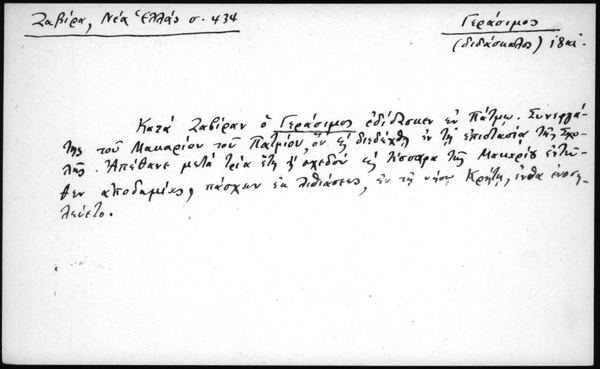 Ζαβίρα, Νέα Ἑλλάς σ. 434
Γεράσιμος
(διδάσκαλος) 18 αἰ.
Κατά Ζαβίραν ὁ Γεράσιμος ἐδίδασκεν ἐν Πάτμῳ. Συνεργά
της τοῦ Μακαρίου τοῦ Πατμίου, ὅν καί διεδέχθη ἐν τῇ ἐπιστασίᾳ τῆς Σχο
λῆς. Ἀπέθανε μετά τρία ἔτη ἤ σχεδόν εἰς τέσσαρα τῆς Μακαρίου ἐντεῦ
θεν ἀποδημίας, πάσχων ἐκ λιθιάσεως, ἐν τῇ νήσῳ Κρήτῃ, ἔνθα ἐνοση
λεύετο.